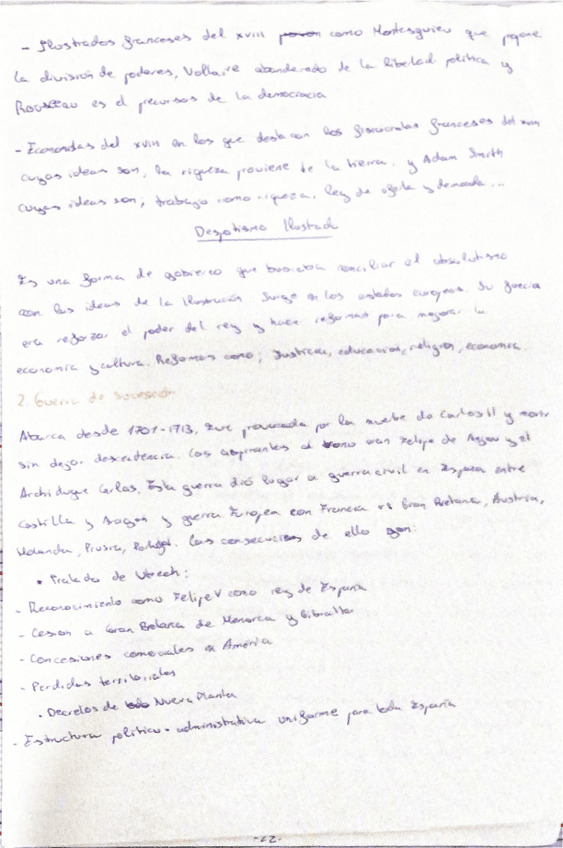 - Ilustrados franceses del XVIII como Montesquieu que propone
la división de poderes, Voltaire abanderado de la libertad política y
Rousseau es el precursos de la democracia
- Economistas del XVIII en los que destacan los fisiocratas franceses del XVIII
cuyas ideas son, la riqueza proviene de la tierra, y Adam Smith
cuyas ideas son; trabajo como riqueza, ley de oferta y demanda...
Despotismo Ilustrado
Es una forma de gobierno que buscaba conciliar el absolutismo
con las ideas de la Ilustración. Surge en los estados europeos. Su
era reforzar el poder del rey y hacer reformas para mejorar la
economia y cultura. Reformas como; Justicia, educación, religión, economia.
2. Guerra de sucesión
Abarca desde 1701-1713, Fue provocada por la muerte de Carlos II y morir
sin dejar descendencia. Los aspirantes al trono eran Felipe de Anjou y el
Archiduque Carlos. Esta guerra dió lugar a guerra civil en España entre
Castilla y Aragon y guerra Europea con Francia vs Gran Bretaña, Austria,
Holanda, Prusia, Portugal. Las consecuencias de ello son:
• Tratado de Utrech:
- Reconocimiento como Felipe V como rey de España
- Cesion a Gran Bretaña de Menorca y Gibraltar
- Concesiones comerciales en América
- Perdidas territoriales
• Decretos de Nueva Planta
- Estructura politico-administrativa uniforme para toda España